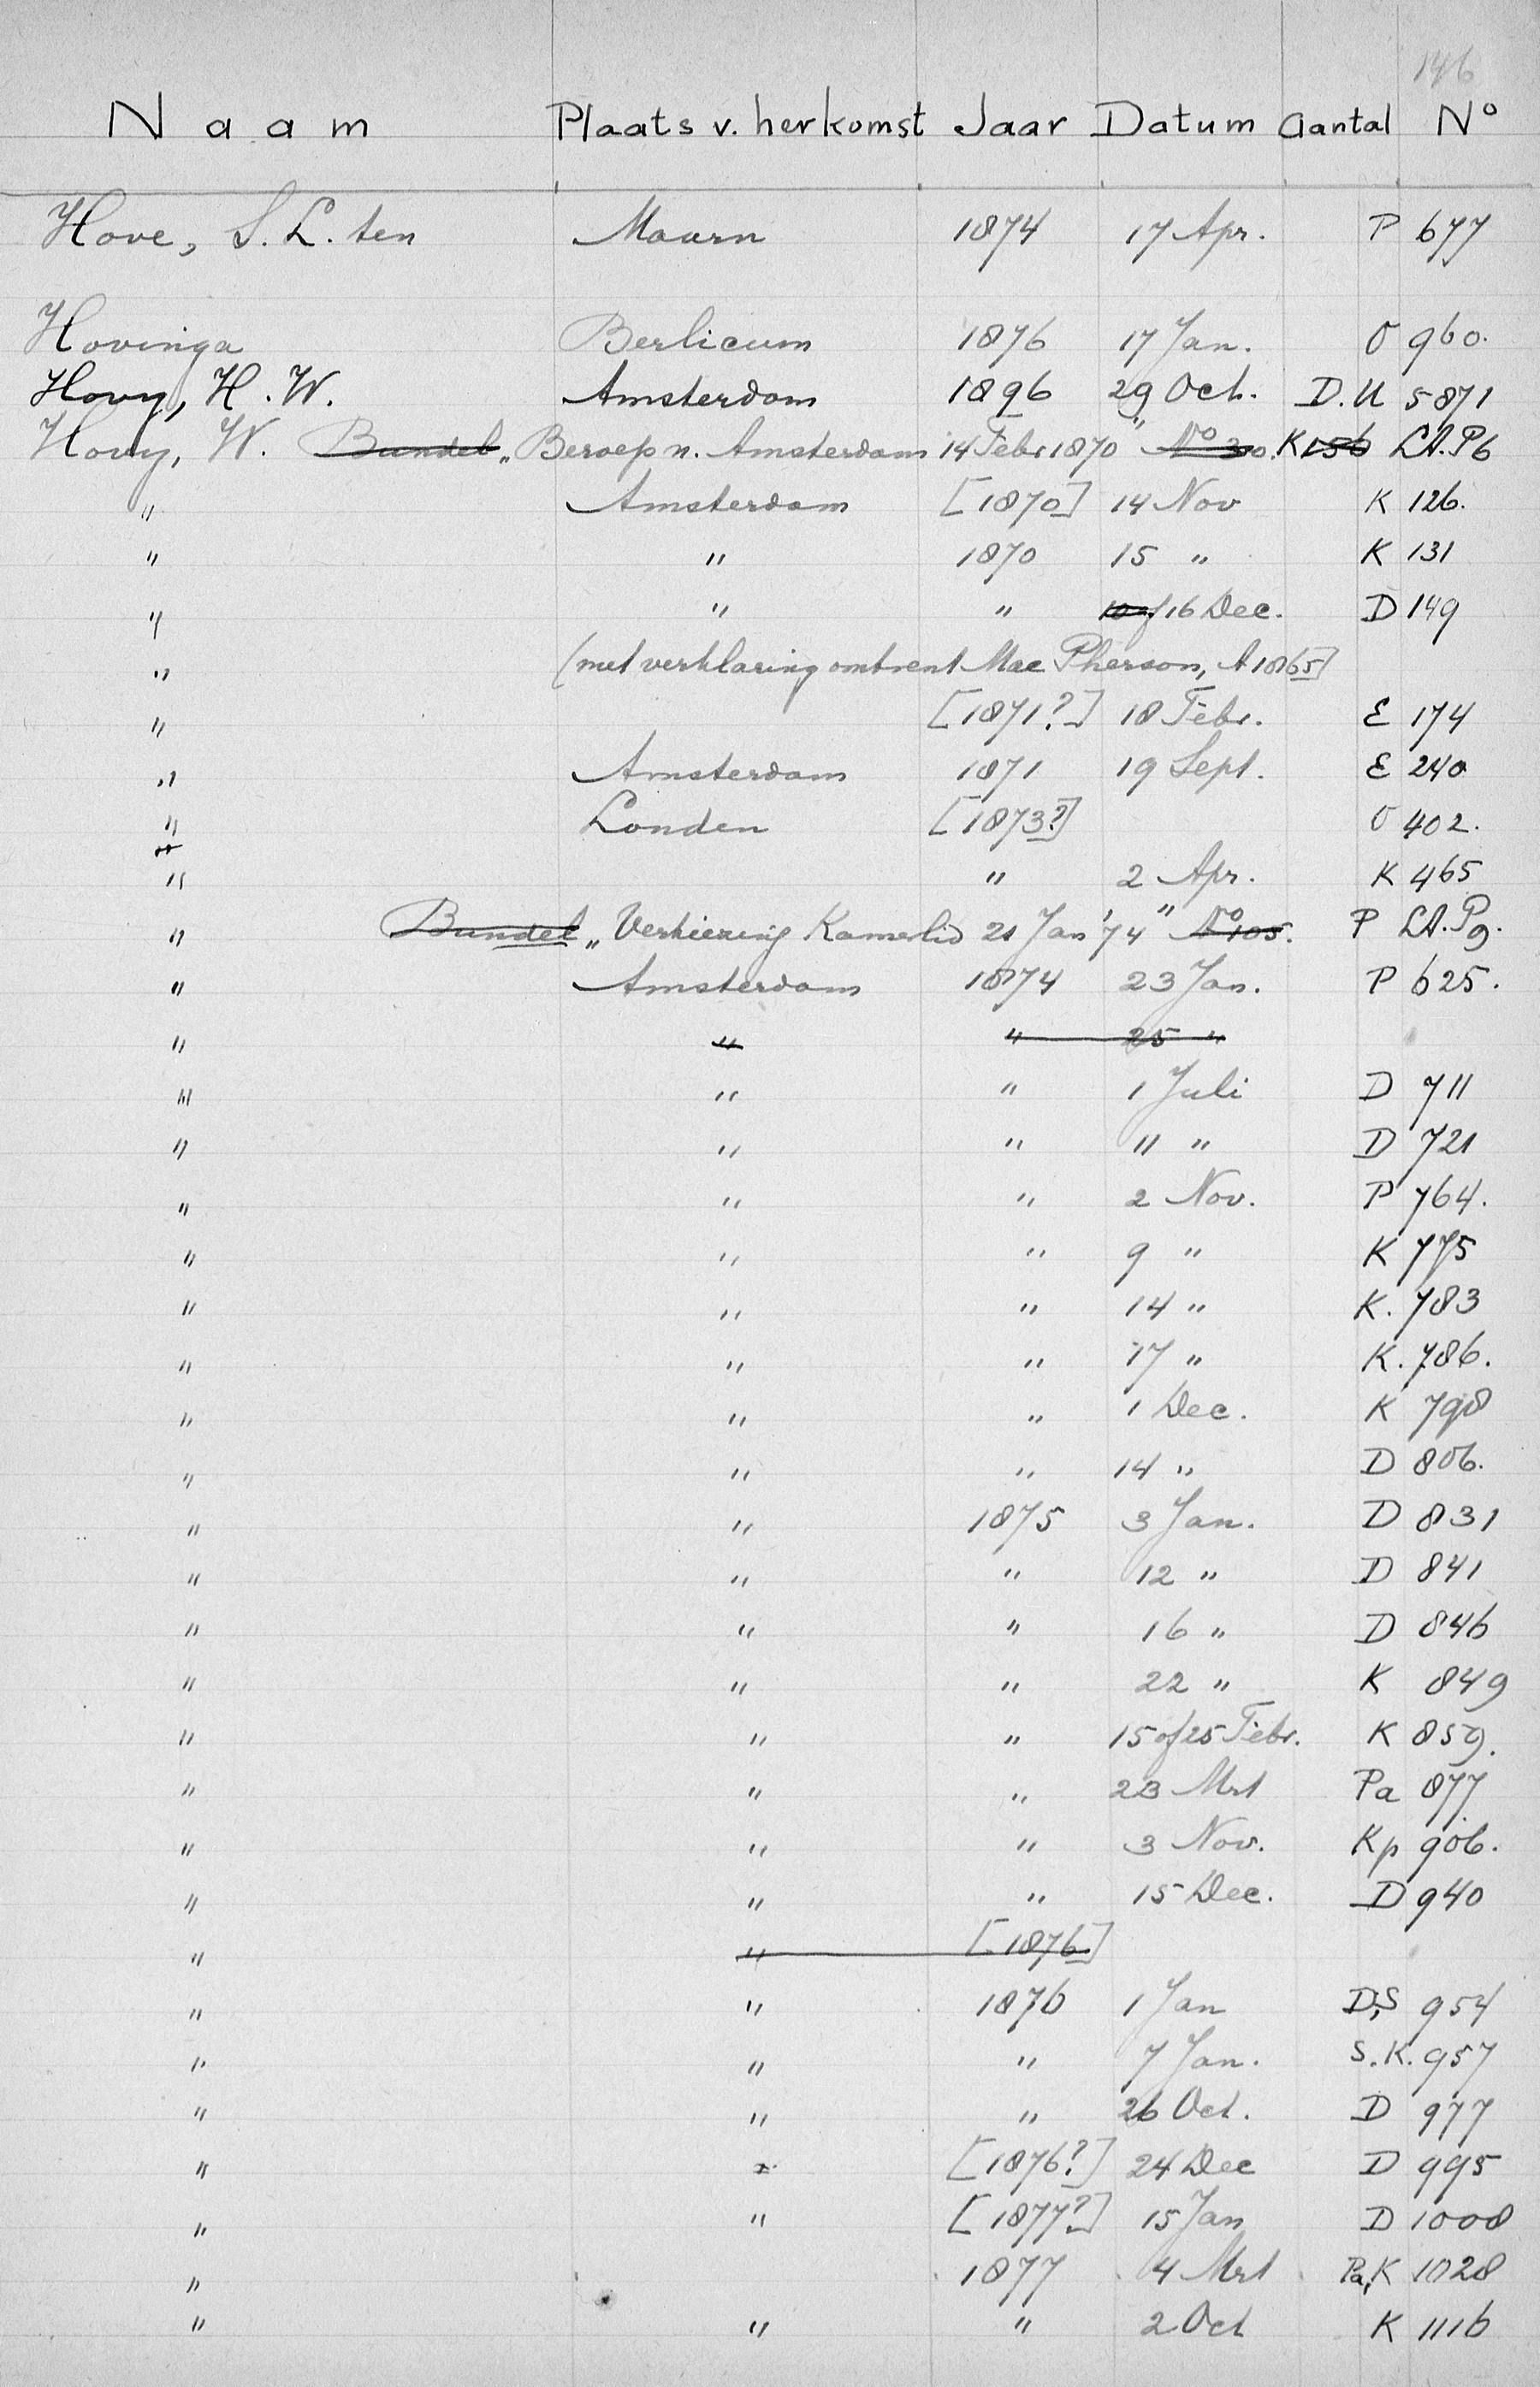 146
Naam Plaats v. herkomst Jaar Datum Aantal No
Hove, S. L. ten Maurn 1874 17 Apr. P 677
Hovinga Berlicum 1876 17 Jan. O 960.
Hovy, H. W. Amsterdam 1896 29 Oct. D.U 5871
Hovy, W. Bundel „Beroep n. Amsterdam 14 Febr 1870" No 30. K 156 LA. P6
" Amsterdam [1870] 14 Nov K 126.
" " 1870 15 " K 131
" " " 10 of 16 Dec. D 149
" (met verklaring omtrent Mac Pherson, A 1865]
" [1871?] 18 Febr. E 174
" Amsterdam 1871 19 Sept. E 240
" Londen [1873?] O 402.
"
" " 2 Apr. K 465
" Bundel „Verkiezing Kamerlid 21 Jan '74" No 105. P LA. P9.
" Amsterdam 1874 23 Jan. P 625.
" " " 25 "
" " " 1 Juli D 711
" " " 11 " D 721
" " " 2 Nov. P 764.
" " " 9 " K 775
" " " 14 " K. 783
" " " 17 " K. 786.
" " " 1 Dec. K 798
" " " 14 " D 806.
" " 1875 3 Jan. D 831
" " " 12 " D 841
" " " 16 " D 846
" " " 22 " K 849
" " " 15 of 25 Febr. K 859.
" " " 23 Mrt Pa 877
" " " 3 Nov. Kp 906.
" " " 15 Dec. D 940
" " [1876]
" " 1876 1 Jan D,S 954
" " " 7 Jan. S.K. 957
" " " 26 Oct. D 977
" " [1876?] 24 Dec D 995
" " [1877?] 15 Jan D 1008
" 1877 4 Mrt Pa,K 1028
" " " 2 Oct K 1116